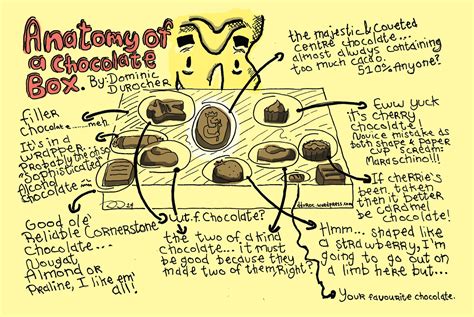 Anatomy of
a Chocolate
Box.
By: Dominic
Durocher
the majestic & coveted
centre chocolate...
almost always containing
too much cacao.
510% Anyone?
filler
chocolate......meh.
It's in a
wrapper.
Probably the
"Sophisticated"
Alcohol
chocolate
Good ole'
Reliable Cornerstone
Chocolate...
Nougat,
Almond or
Praline, I like em'
all!
w.t.f. Chocolate?
the two of a kind
chocolate... it must
be good because they
made two of them, Right?
Eww yuck
it's cherry
chocolate!
Novice mistake as
both shape & paper
cup scream:
Maraschino!!!
If cherrie's
been taken,
then it better
be caramel
Chocolate!
Hmm... shaped like
a strawberry, I'm
going to go out on
a limb here but...
Your favourite chocolate.